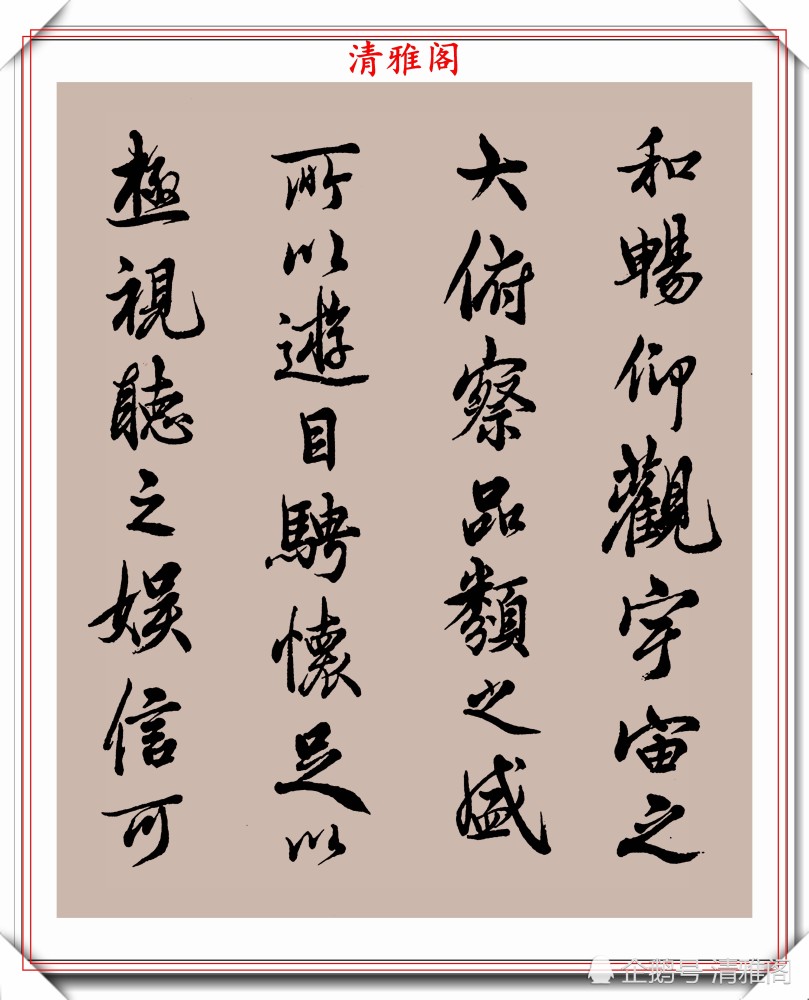 清雅阁
和暢仰觀宇宙之
大俯察品類之盛
所以遊目騁懷足以
極視聽之娛信可
企鹅号 清雅阁